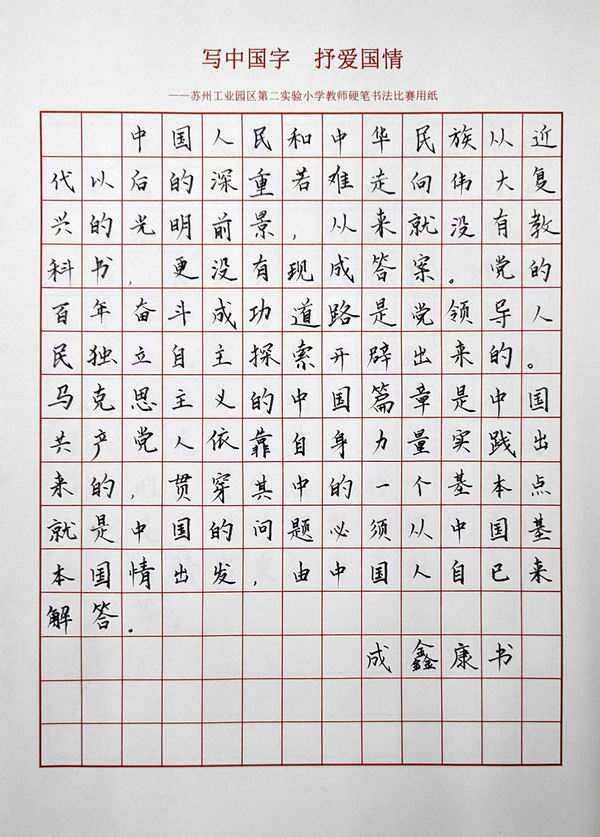 写中国字　抒爱国情
——苏州工业园区第二实验小学教师硬笔书法比赛用纸
中国人民和中华民族从近
代以后的深重苦难走向伟大复
兴的光明前景，从来就没有教
科书，更没有现成答案。党的
百年奋斗成功道路是党领导人
民独立自主探索开辟出来的。
马克思主义的中国篇章是中国
共产党人依靠自身力量实践出
来的，贯穿其中的一个基本点
就是中国的问题必须从中国基
本国情出发，由中国人自己来
解答。
成鑫康书